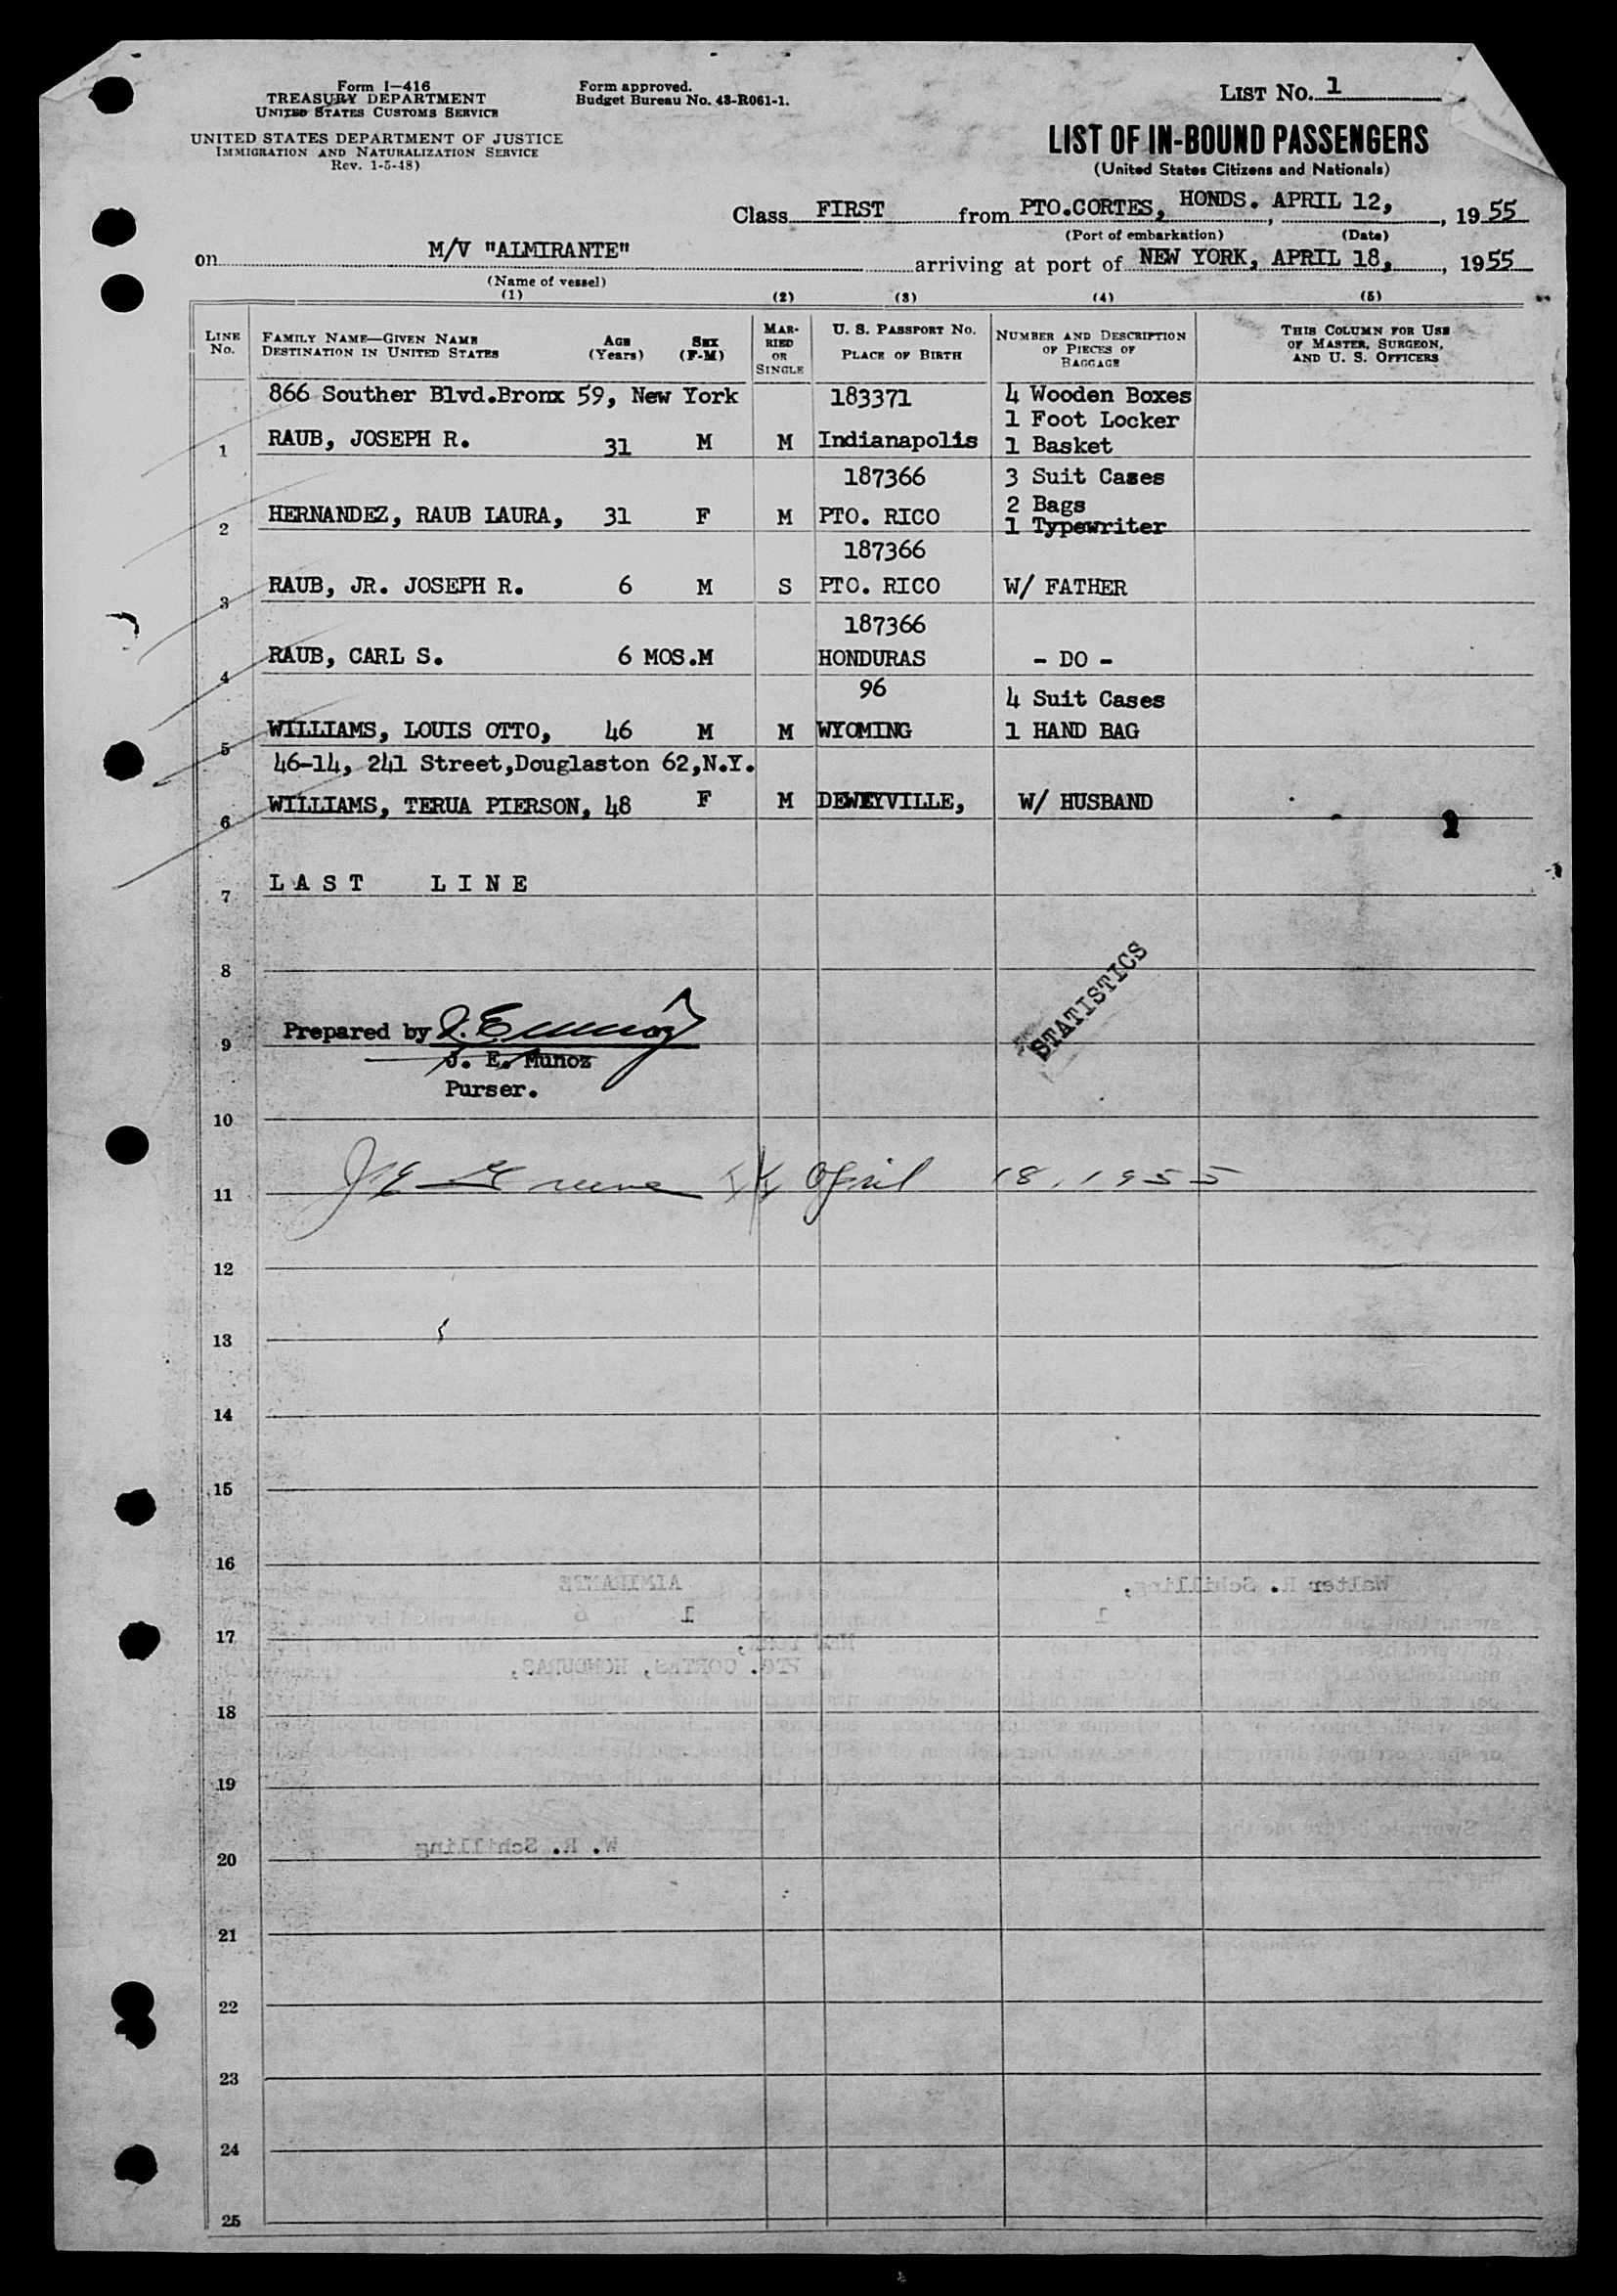 Form I-416
TREASURY DEPARTMENT
UNITED STATES CUSTOMS SERVICE
UNITED STATES DEPARTMENT OF JUSTICE
IMMIGRATION AND NATURALIZATION SERVICE
Rev. 1-5-48)
Form approved.
Budget Bureau No. 43-R061-1.
LIST No. 1
LIST OF IN-BOUND PASSENGERS
(United States Citizens and Nationals)
Class FIRST from PTO.CORTES, HONDS. APRIL 12, , 1955
(Port of embarkation) (Date)
on M/V "ALMIRANTE" arriving at port of NEW YORK, APRIL 18, , 1955
(Name of vessel)
(1) (2) (3) (4) (5)
LINE No. FAMILY NAME—GIVEN NAME DESTINATION IN UNITED STATES AGE (Years) SEX (F-M) MARRIED OR SINGLE U. S. PASSPORT No. PLACE OF BIRTH NUMBER AND DESCRIPTION OF PIECES OF BAGGAGE THIS COLUMN FOR USE OF MASTER, SURGEON, AND U. S. OFFICERS
866 Souther Blvd.Bronx 59, New York 183371 4 Wooden Boxes
1 Foot Locker
1 RAUB, JOSEPH R. 31 M M Indianapolis 1 Basket
187366 3 Suit Cases
2 Bags
2 HERNANDEZ, RAUB LAURA, 31 F M PTO. RICO 1 Typewriter
187366
3 RAUB, JR. JOSEPH R. 6 M S PTO. RICO W/ FATHER
187366
4 RAUB, CARL S. 6 MOS.M HONDURAS - DO -
96 4 Suit Cases
5 WILLIAMS, LOUIS OTTO, 46 M M WYOMING 1 HAND BAG
46-14, 241 Street,Douglaston 62,N.Y.
6 WILLIAMS, TERUA PIERSON, 48 F M DEWEYVILLE, W/ HUSBAND
7 LAST LINE
8
STATISTICS
9 Prepared by
J. E. Munoz
Purser.
10
11 April 18, 1955
12
13
14
15
16
Walter R. Schilling, ALMIRANTE
1 1 6
17
NEW YORK,
PTO. CORTES, HONDURAS,
18
19
W. R. Schilling
20
21
22
23
24
25